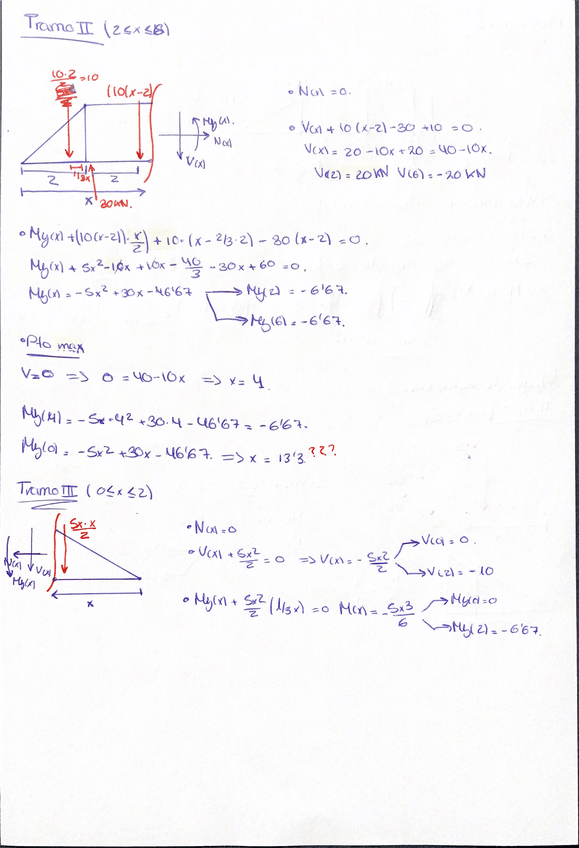 Tramo II (2≤x≤6)
10·2/2 = 10
(10(x-2)
My(x).
N(x)
V(x)
2
2
x
30kN.
• N(x) = 0.
• V(x) + 10(x-2) - 30 + 10 = 0.
V(x) = 20 - 10x + 20 = 40 - 10x.
V(2) = 20 kN V(6) = -20 kN
• My(x) + (10(x-2))·x/2) + 10·(x - 2/3·2) - 30(x-2) = 0.
My(x) + 5x² - 10x + 10x - 40/3 - 30x + 60 = 0.
My(x) = -5x² + 30x - 46'67 → My(2) = -6'67.
→ My(6) = -6'67.
• Pto max
V=0 => 0 = 40-10x => x = 4.
My(4) = -5·4² + 30·4 - 46'67 = -6'67.
My(0) = -5x² + 30x - 46'67. => x = 13'3 ???
Tramo III (0≤x≤2)
5x·x/2
N(x)
V(x)
My(x)
x
• N(x) = 0
• V(x) + 5x²/2 = 0 => V(x) = -5x²/2 → V(0) = 0.
→ V(2) = -10
• My(x) + 5x²/2 (1/3 x) = 0 M(x) = -5x3/6 → My(0) = 0
→ My(2) = -6'67.